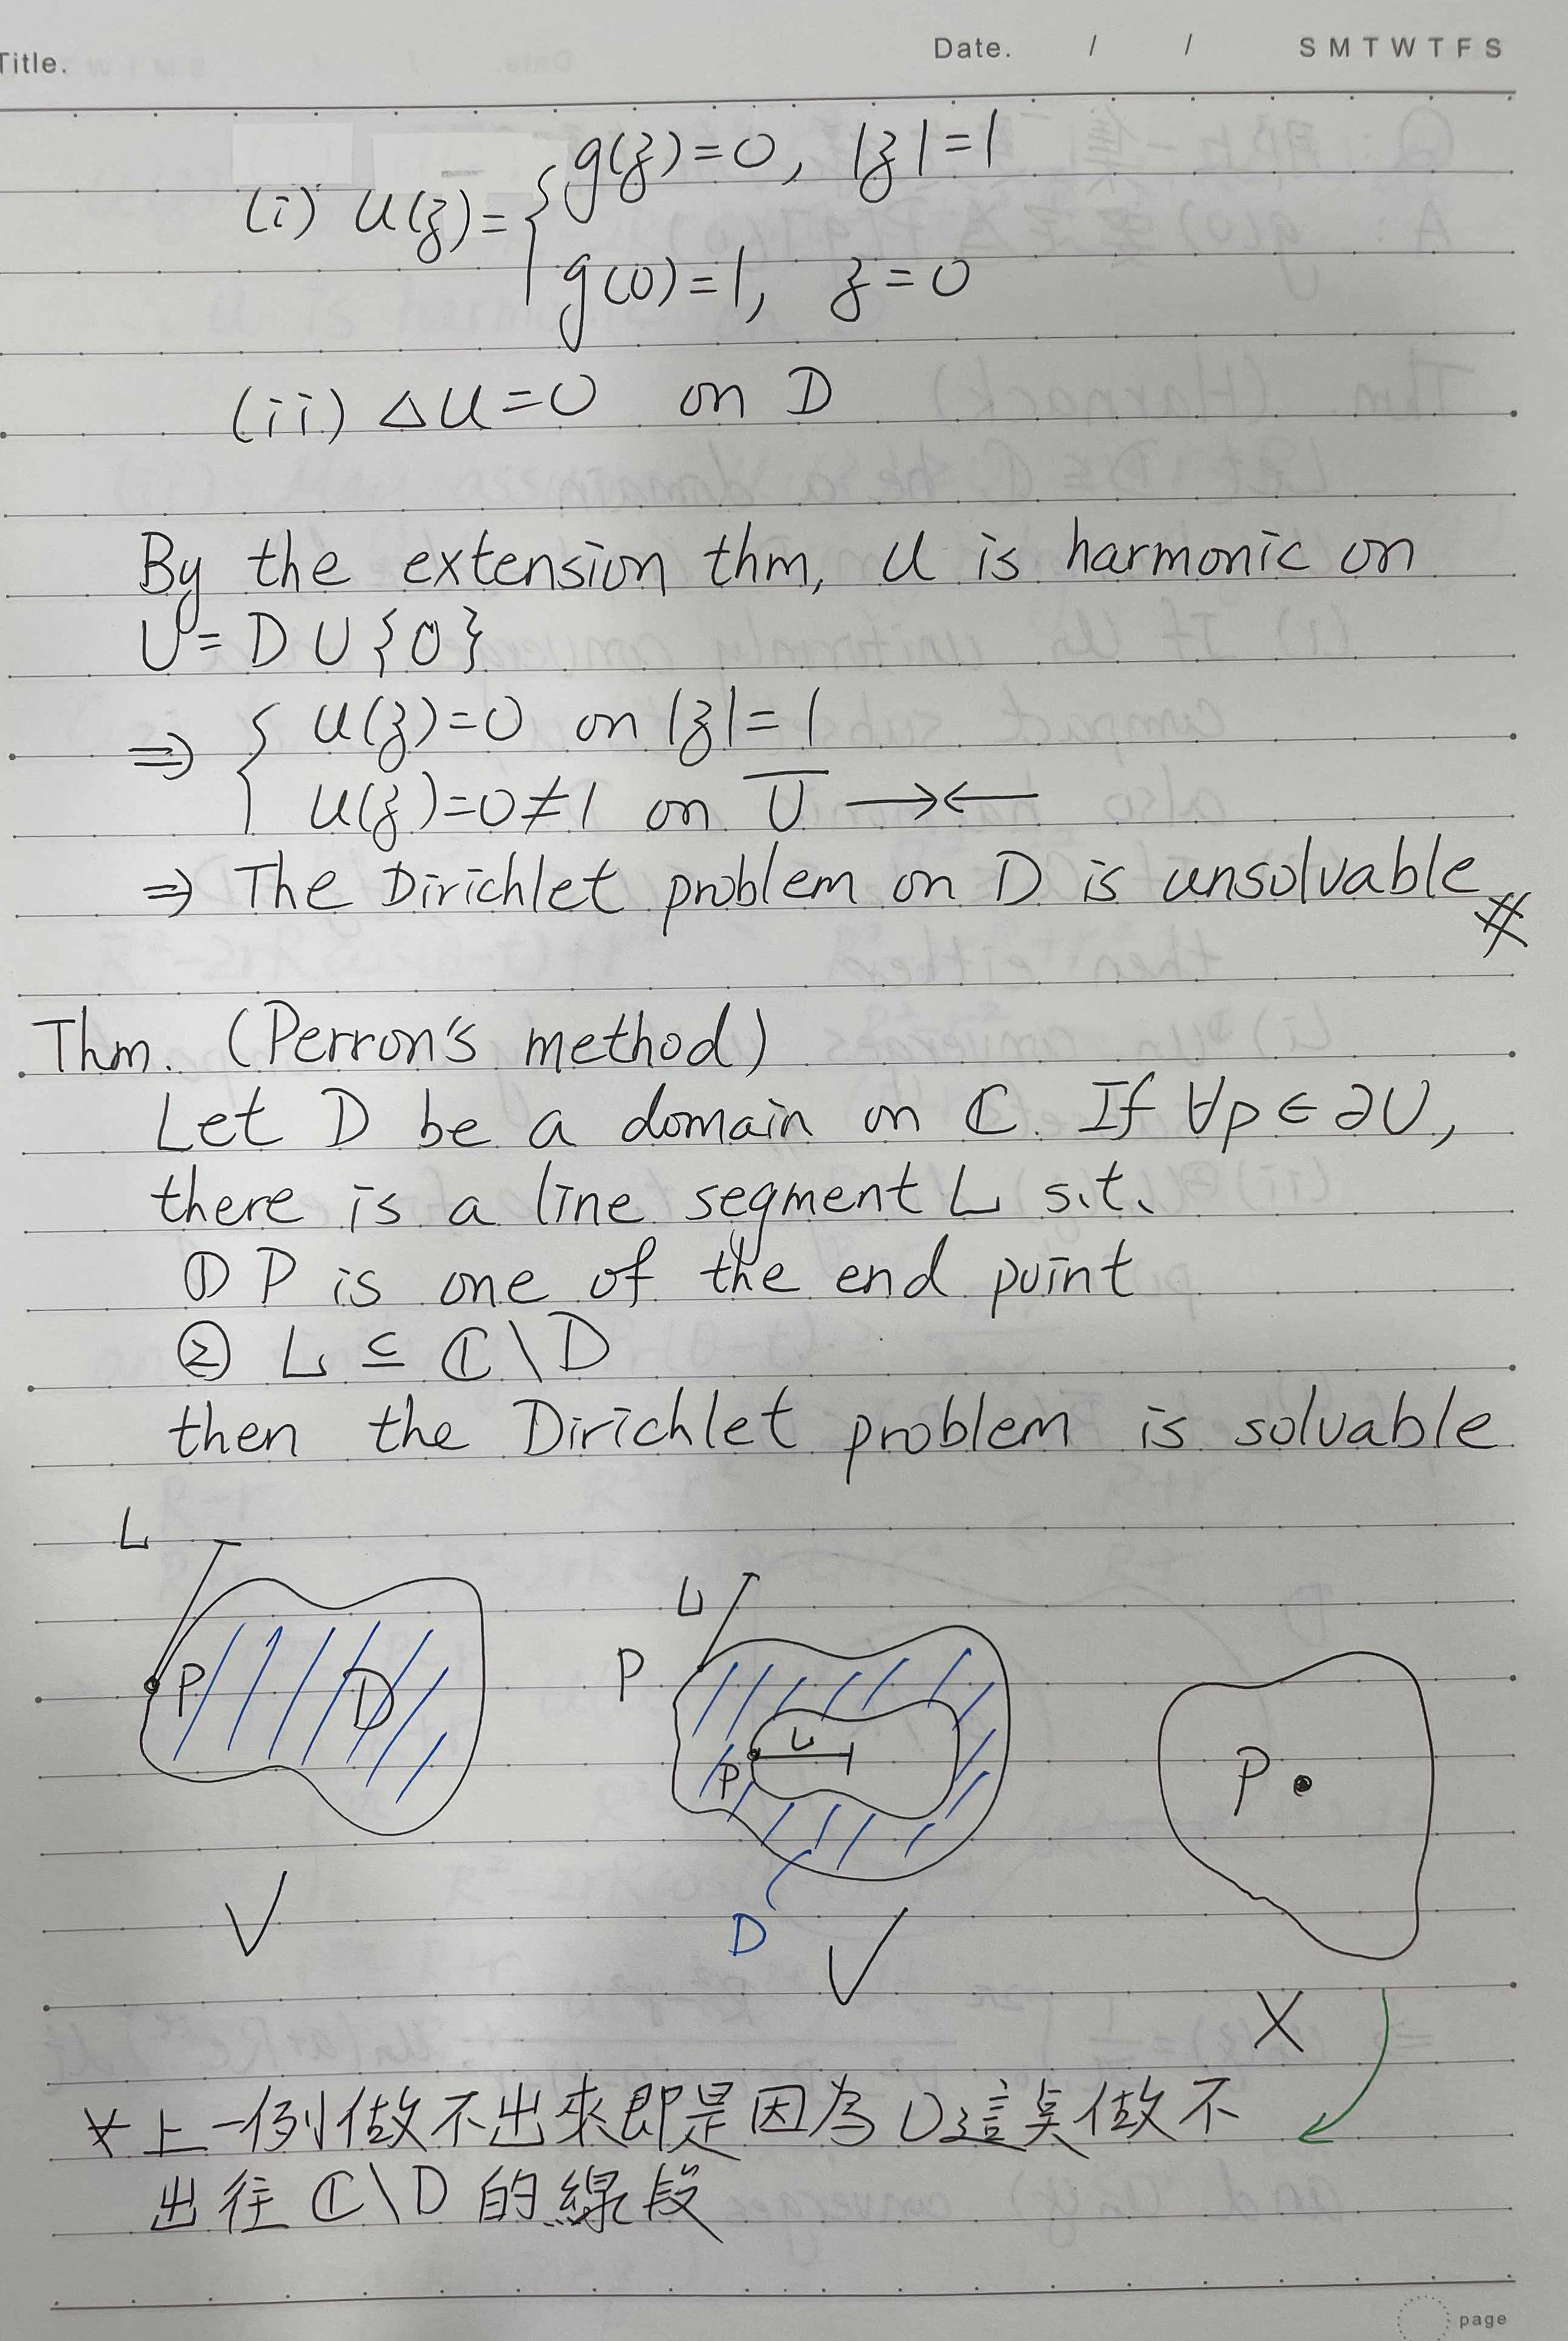 Title.
Date. / / S M T W T F S
(i) u(z)= { g(z)=0, |z|=1
g(0)=1, z=0
(ii) △u=0 on D
By the extension thm, u is harmonic on
U=D∪{0}
⇒ { u(z)=0 on |z|=1
u(z)=0≠1 on U̅ →←
⇒ The Dirichlet problem on D is unsolvable #
Thm. (Perron's method)
Let D be a domain on ℂ. If ∀p∈∂U,
there is a line segment L s.t.
① P is one of the end point
② L ⊆ ℂ\D
then the Dirichlet problem is solvable
L
P D
L
P
L
P
D
P
✓
✓
X
* 上一例做不出來即是因為 0 這點做不
出往 ℂ\D 的線段
page